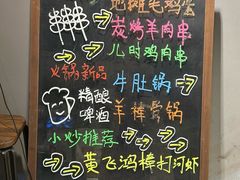 炭烤羊肉串
儿时鸡肉串
火锅新品
牛肚锅
精酿
啤酒
羊棒骨锅
小炒推荐
黄飞鸿棒打河虾